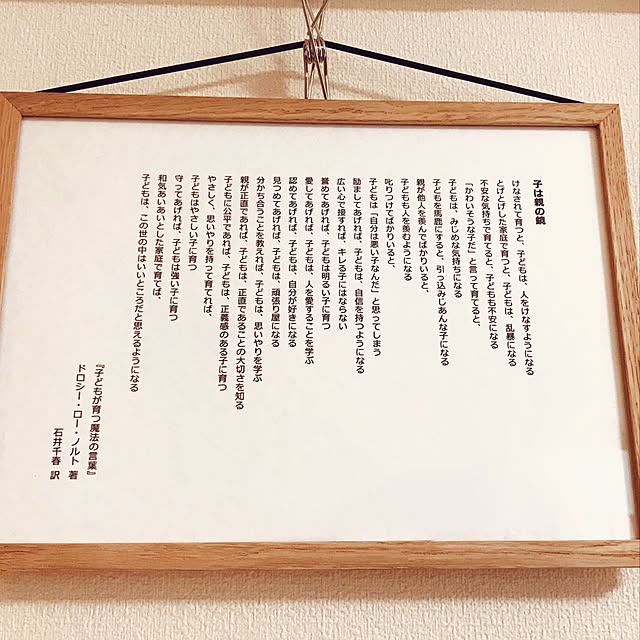 子は親の鏡
けなされて育つと、子どもは、人をけなすようになる
とげとげした家庭で育つと、子どもは、乱暴になる
不安な気持ちで育てると、子どもも不安になる
「かわいそうな子だ」と言って育てると、
子どもは、みじめな気持ちになる
子どもを馬鹿にすると、引っ込みじあんな子になる
親が他人を羨んでばかりいると、
子どもも人を羨むようになる
叱りつけてばかりいると、
子どもは「自分は悪い子なんだ」と思ってしまう
励ましてあげれば、子どもは、自信を持つようになる
広い心で接すれば、キレる子にはならない
誉めてあげれば、子どもは明るい子に育つ
愛してあげれば、子どもは、人を愛することを学ぶ
認めてあげれば、子どもは、自分が好きになる
見つめてあげれば、子どもは、頑張り屋になる
分かち合うことを教えれば、子どもは、思いやりを学ぶ
親が正直であれば、子どもは、正直であることの大切さを知る
子どもに公平であれば、子どもは、正義感のある子に育つ
やさしく、思いやりを持って育てれば、
子どもはやさしい子に育つ
守ってあげれば、子どもは強い子に育つ
和気あいあいとした家庭で育てば、
子どもは、この世の中はいいところだと思えるようになる
『子どもが育つ魔法の言葉』
ドロシー・ロー・ノルト 著
石井千春 訳